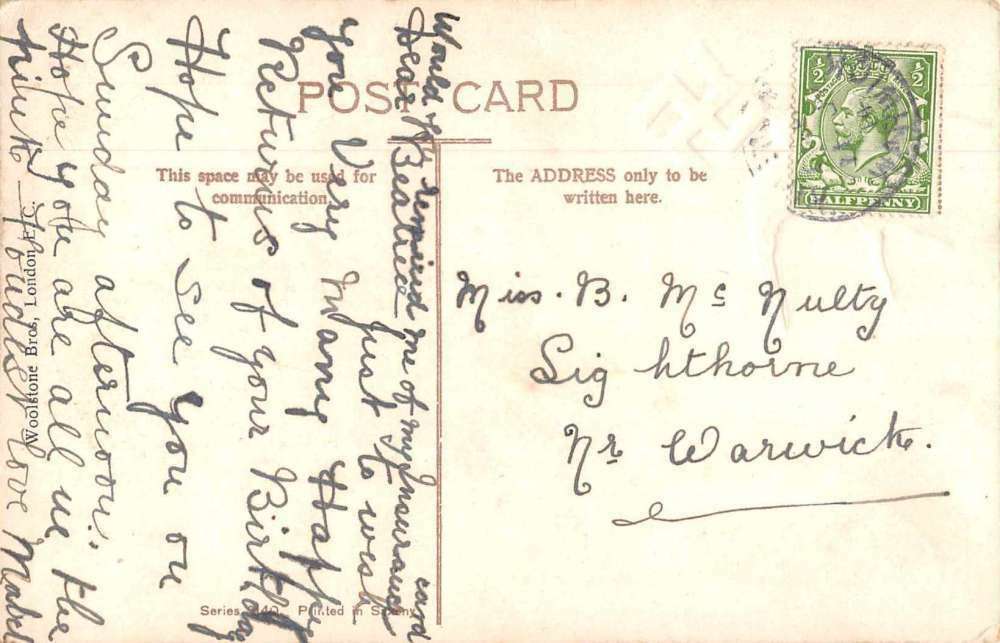 POST CARD
This space may be used for
communication.
The ADDRESS only to be
written here.
HALFPENNY
½ ½
Miss. B. Mc Nulty
Lighthorne
Nr Warwick.
Would remind me of my Insurance card
Dear Beatrice Just to wish
you Very Many Happy
Returns of your Birthday
Hope to See you on
Sunday afternoon.
Hope you are all in the
pink love Mabel
Woolstone Bros, London E.C.
Series 140. Printed in Saxony